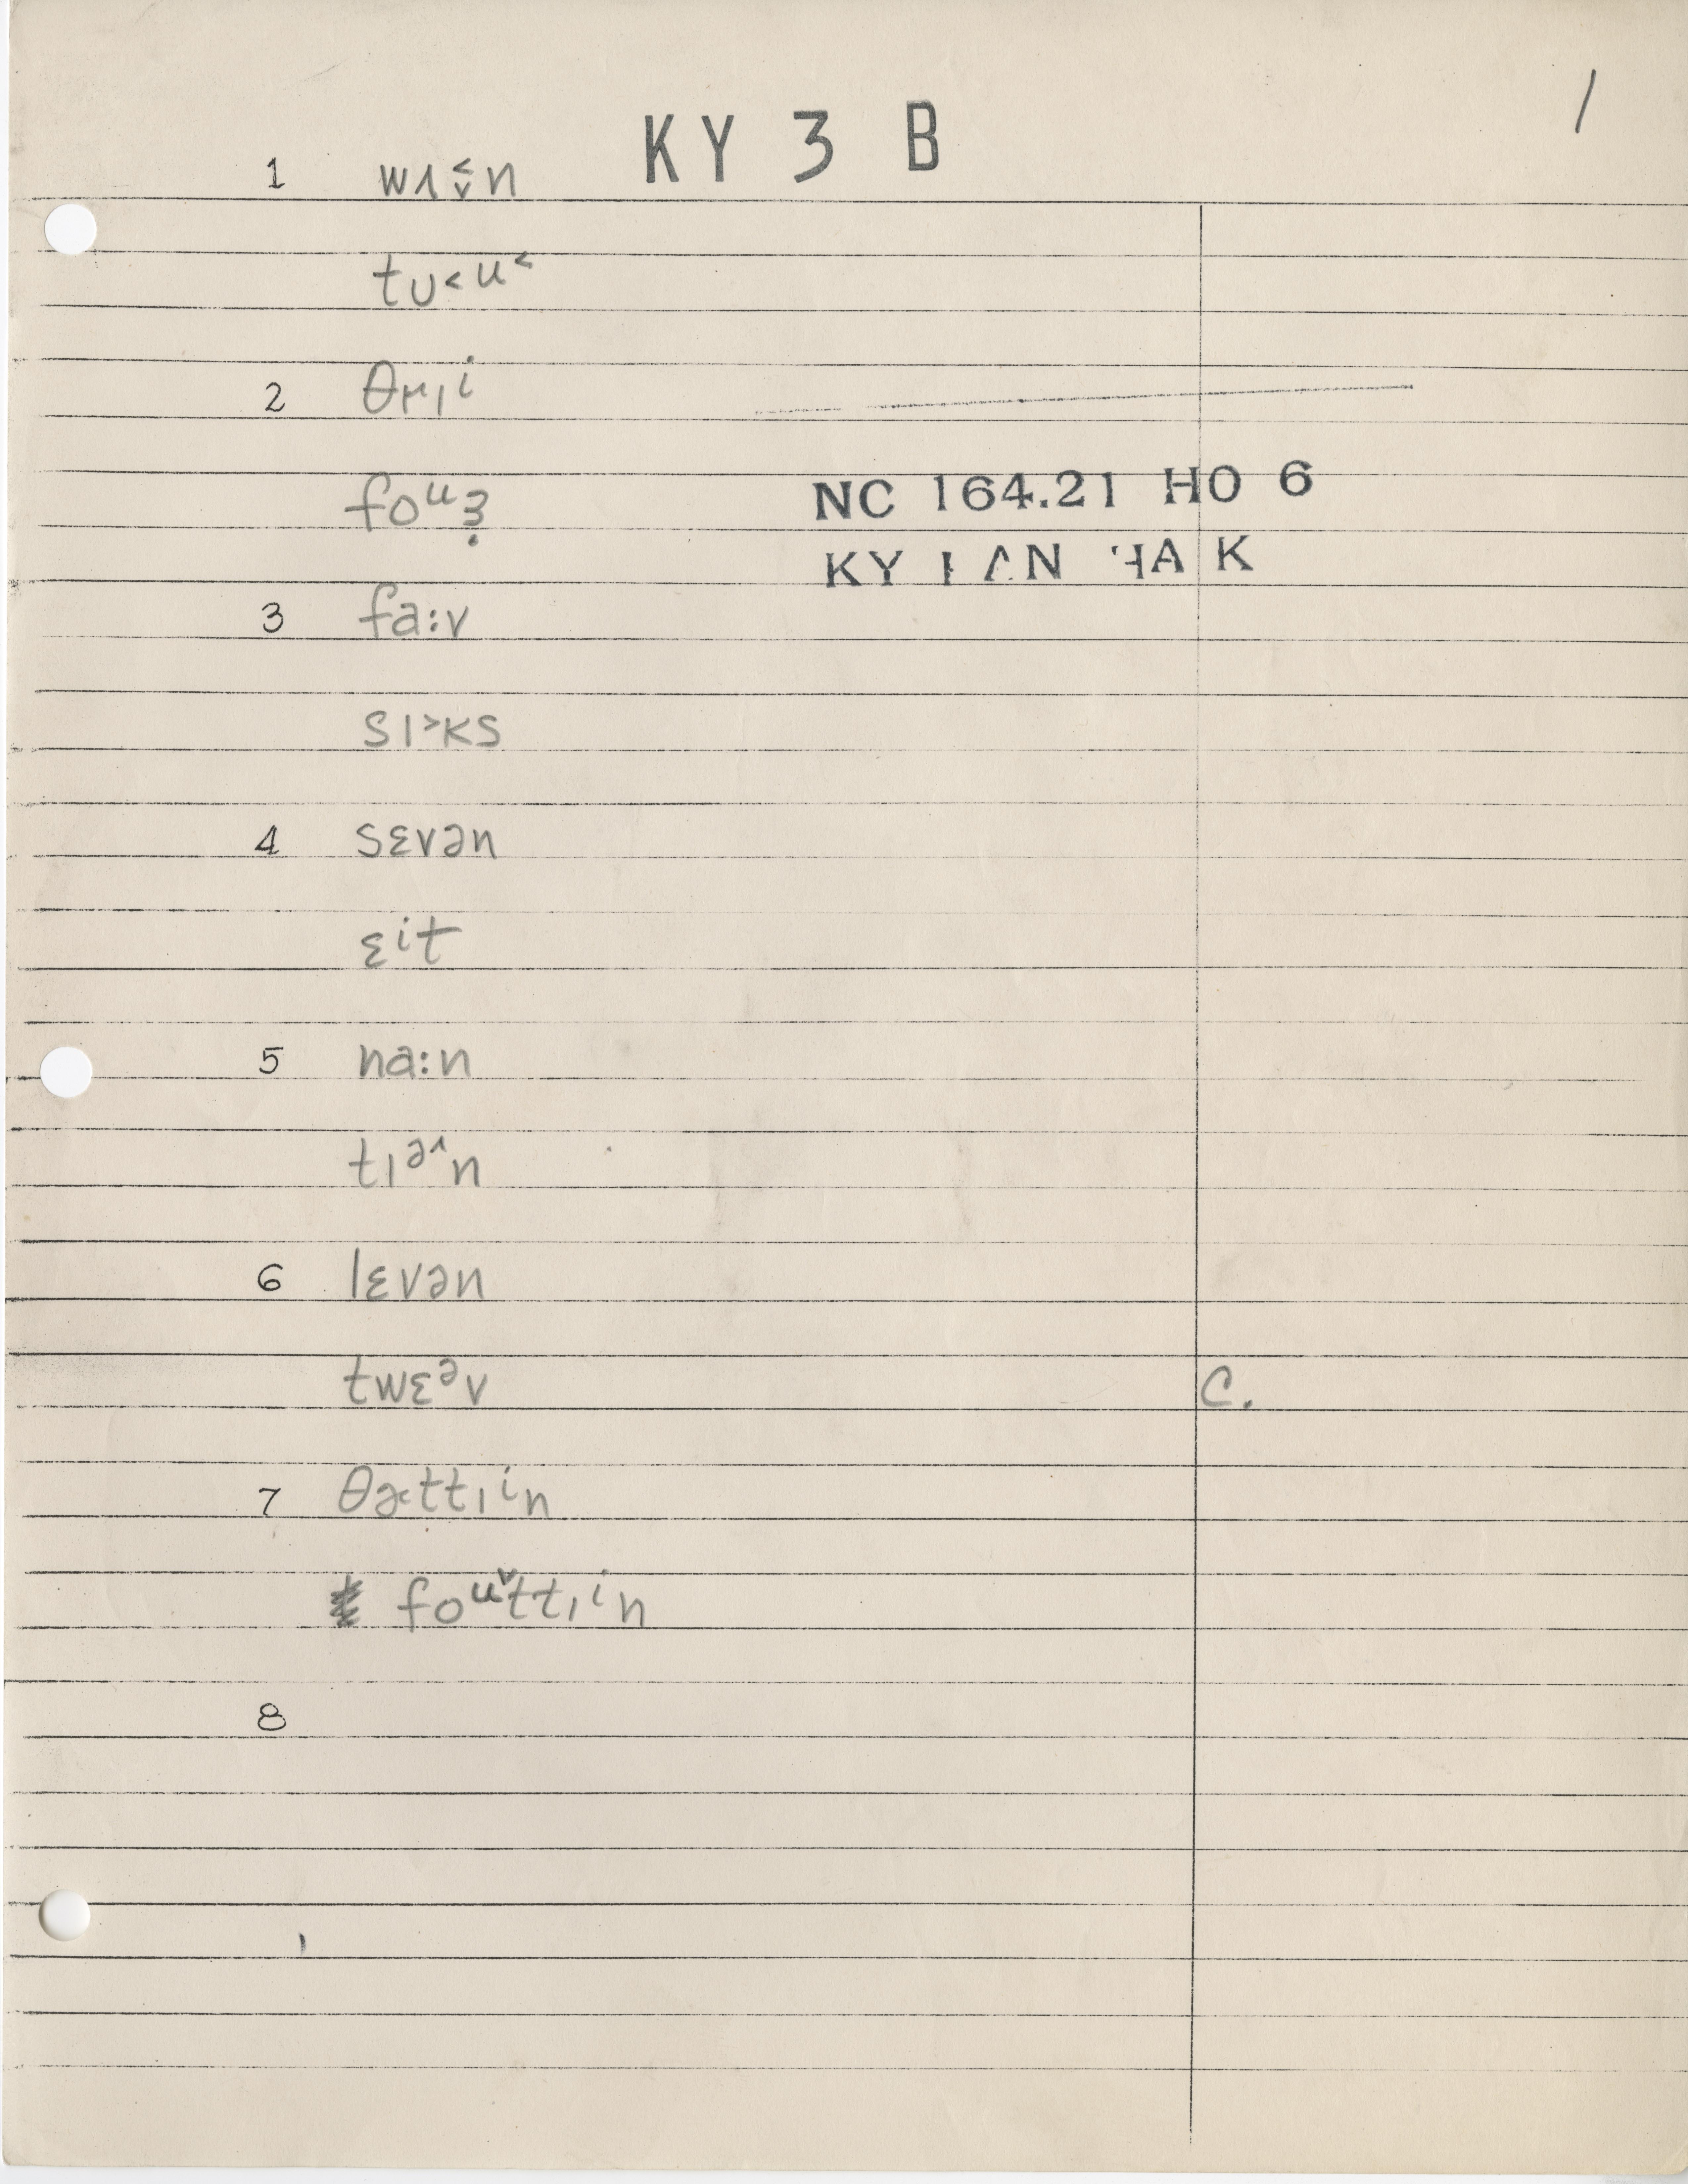 /
KY 3 B
1 wʌ˱˯n
tʊ˂u˂
2 θrɪi
foᵘɜ̣
NC 164.21 HO 6
KY
3 fa:v
sɪ˃ks
4 sɛvən
ɛⁱt
5 na:n
tɪᵊ˄n
6 lɛvən
twɛᵊv C.
7 θɚttɪⁱn
foᵘ˅ttɪⁱn
8